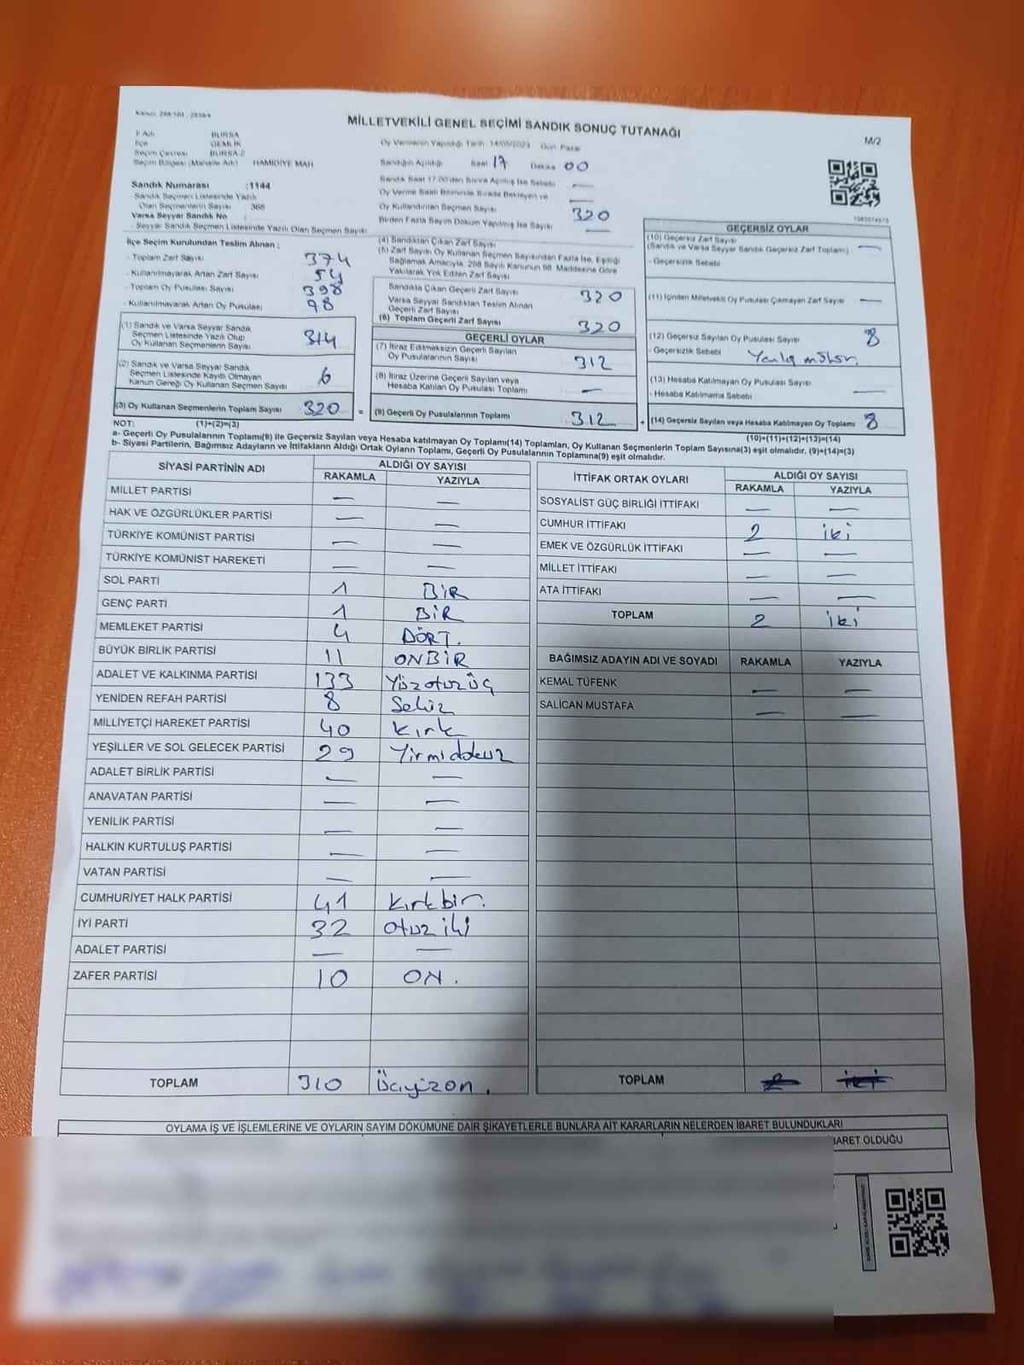 MİLLETVEKİLİ GENEL SEÇİMİ SANDIK SONUÇ TUTANAĞI
M/2
İl Adı BURSA
İlçe GEMLİK
Seçim Çevresi BURSA-2
Seçim Bölgesi (Mahalle Adı) HAMİDİYE MAH
Oy Vermenin Yapıldığı Tarih 14/05/2023 Gün Pazar
Sandığın Açıldığı Saat 17 Dakika 00
Sandık Numarası :1144
Sandık Seçmen Listesinde Yazılı
Olan Seçmenlerin Sayısı : 368
Varsa Seyyar Sandık No :
Seyyar Sandık Seçmen Listesinde Yazılı Olan Seçmen Sayısı
Sandık Saat 17.00'den Sonra Açılmış İse Sebebi —
Oy Verme Saati Bitiminde Sırada Bekleyen ve
Oy Kullandırılan Seçmen Sayısı
320
Birden Fazla Sayım Döküm Yapılmış İse Sayısı —
İlçe Seçim Kurulundan Teslim Alınan ;
- Toplam Zarf Sayısı 374
- Kullanılmayarak Artan Zarf Sayısı 54
- Toplam Oy Pusulası Sayısı 398
- Kullanılmayarak Artan Oy Pusulası 98
(1) Sandık ve Varsa Seyyar Sandık
Seçmen Listesinde Yazılı Olup
Oy Kullanan Seçmenlerin Sayısı 314
(2) Sandık ve Varsa Seyyar Sandık
Seçmen Listesinde Kayıtlı Olmayan
Kanun Gereği Oy Kullanan Seçmen Sayısı 6
(3) Oy Kullanan Seçmenlerin Toplam Sayısı 320 =
(4) Sandıktan Çıkan Zarf Sayısı
(5) Zarf Sayısı Oy Kullanan Seçmen Sayısından Fazla İse, Eşitliği
Sağlamak Amacıyla, 298 Sayılı Kanunun 98. Maddesine Göre
Yakılarak Yok Edilen Zarf Sayısı
Sandıkta Çıkan Geçerli Zarf Sayısı 320
Varsa Seyyar Sandıktan Teslim Alınan
Geçerli Zarf Sayısı
(6) Toplam Geçerli Zarf Sayısı 320
GEÇERLİ OYLAR
(7) İtiraz Edilmeksizin Geçerli Sayılan
Oy Pusulalarının Sayısı 312
(8) İtiraz Üzerine Geçerli Sayılan veya
Hesaba Katılan Oy Pusulası Toplamı —
(9) Geçerli Oy Pusulalarının Toplamı 312 +
GEÇERSİZ OYLAR
(10) Geçersiz Zarf Sayısı
(Sandık ve Varsa Seyyar Sandık Geçersiz Zarf Toplamı) —
- Geçersizlik Sebebi
(11) İçinden Milletvekili Oy Pusulası Çıkmayan Zarf Sayısı —
(12) Geçersiz Sayılan Oy Pusulası Sayısı 8
- Geçersizlik Sebebi
(13) Hesaba Katılmayan Oy Pusulası Sayısı —
- Hesaba Katılmama Sebebi
(14) Geçersiz Sayılan veya Hesaba Katılmayan Oy Toplamı 8
NOT: (1)+(2)=(3)
(10)+(11)+(12)+(13)=(14)
a- Geçerli Oy Pusulalarının Toplamı(9) ile Geçersiz Sayılan veya Hesaba katılmayan Oy Toplamı(14) Toplamları, Oy Kullanan Seçmenlerin Toplam Sayısına(3) eşit olmalıdır. (9)+(14)=(3)
b- Siyasi Partilerin, Bağımsız Adayların ve İttifakların Aldığı Ortak Oyların Toplamı, Geçerli Oy Pusulalarının Toplamına(9) eşit olmalıdır.
SİYASİ PARTİNİN ADI ALDIĞI OY SAYISI
RAKAMLA YAZIYLA
MİLLET PARTİSİ — —
HAK VE ÖZGÜRLÜKLER PARTİSİ — —
TÜRKİYE KOMÜNİST PARTİSİ — —
TÜRKİYE KOMÜNİST HAREKETİ — —
SOL PARTİ 1 BİR
GENÇ PARTİ 1 BİR
MEMLEKET PARTİSİ 4 DÖRT.
BÜYÜK BİRLİK PARTİSİ 11 ONBİR
ADALET VE KALKINMA PARTİSİ 133 Yüzotuzüç
YENİDEN REFAH PARTİSİ 8 Sekiz
MİLLİYETÇİ HAREKET PARTİSİ 40 Kırk
YEŞİLLER VE SOL GELECEK PARTİSİ 29 Yirmidokuz
ADALET BİRLİK PARTİSİ — —
ANAVATAN PARTİSİ — —
YENİLİK PARTİSİ — —
HALKIN KURTULUŞ PARTİSİ — —
VATAN PARTİSİ — —
CUMHURİYET HALK PARTİSİ 41 Kırkbir.
İYİ PARTİ 32 otuz iki
ADALET PARTİSİ — —
ZAFER PARTİSİ 10 ON.
TOPLAM 310 Üçyüzon.
İTTİFAK ORTAK OYLARI ALDIĞI OY SAYISI
RAKAMLA YAZIYLA
SOSYALİST GÜÇ BİRLİĞİ İTTİFAKI — —
CUMHUR İTTİFAKI 2 iki
EMEK VE ÖZGÜRLÜK İTTİFAKI — —
MİLLET İTTİFAKI — —
ATA İTTİFAKI — —
TOPLAM 2 iki
BAĞIMSIZ ADAYIN ADI VE SOYADI RAKAMLA YAZIYLA
KEMAL TÜFENK — —
SALİCAN MUSTAFA — —
TOPLAM 2 iki
OYLAMA İŞ VE İŞLEMLERİNE VE OYLARIN SAYIM DÖKÜMÜNE DAİR ŞİKAYETLERLE BUNLARA AİT KARARLARIN NELERDEN İBARET BULUNDUKLARI
İBARET OLDUĞU